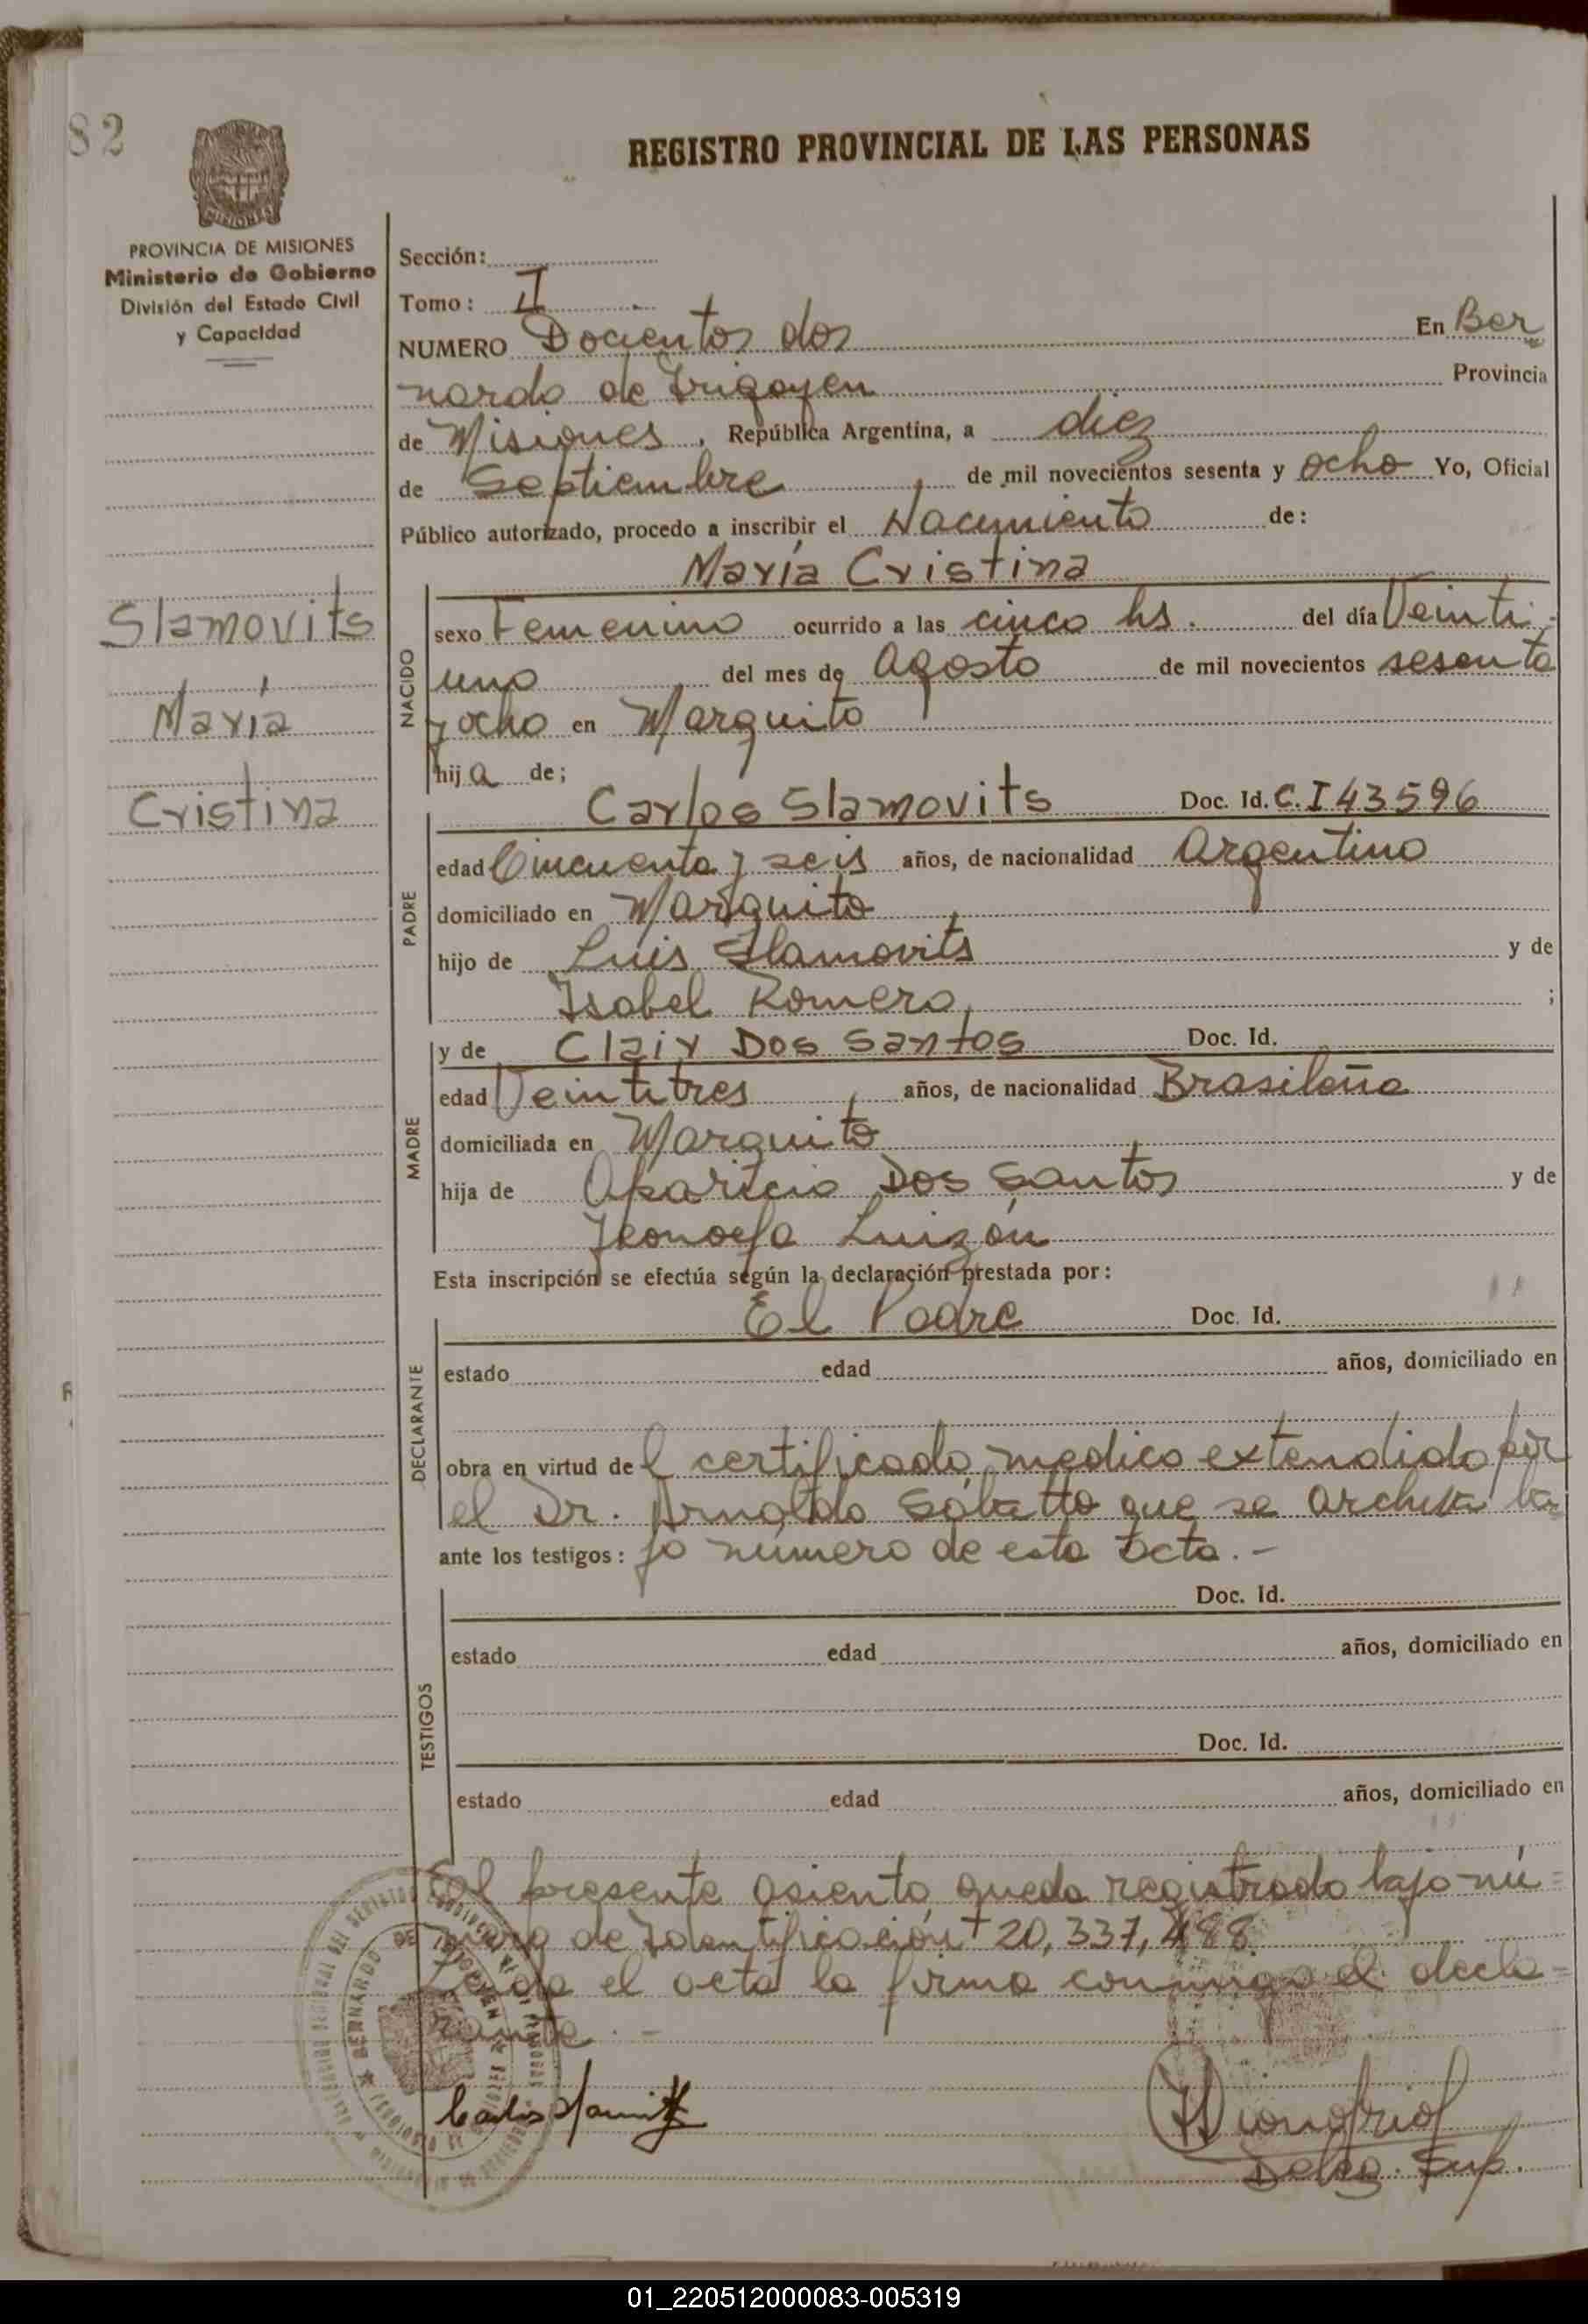 82
REGISTRO PROVINCIAL DE LAS PERSONAS
MISIONES
PROVINCIA DE MISIONES
Ministerio de Gobierno
División del Estado Civil
y Capacidad
Slamovits
María
Cristina
Sección:
Tomo: II
NUMERO Docientos dos En Ber
nardo de Irigoyen Provincia
de Misiones, República Argentina, a diez
de Septiembre de mil novecientos sesenta y ocho Yo, Oficial
Público autorizado, procedo a inscribir el Nacimiento de:
María Cristina
NACIDO
sexo Femenino ocurrido a las cinco hs. del día Veinti
uno del mes de Agosto de mil novecientos sesenta
y ocho en Marquito
hija de;
Carlos Slamovits Doc. Id. C.I 43596
PADRE
edad Cincuenta y seis años, de nacionalidad Argentino
domiciliado en Marquito
hijo de Luis Slamovits y de
Isabel Romero ;
MADRE
y de Clair Dos Santos Doc. Id.
edad Veintitres años, de nacionalidad Brasileña
domiciliada en Marquito
hija de Aparicio Dos Santos y de
Luizón
Esta inscripción se efectúa según la declaración prestada por:
El Padre Doc. Id.
DECLARANTE
estado edad años, domiciliado en
obra en virtud del certificado medico extendido por
el Dr. Arnoldo Sábatto que se archiva ba
ante los testigos: jo número de esta acta.-
Doc. Id.
TESTIGOS
estado edad años, domiciliado en
Doc. Id.
estado edad años, domiciliado en
El presente asiento queda registrado bajo nú-
mero de Identificación 20,337,488
Leida el acta la firma conmigo el decla-
rante.-
BERNARDO DE IRIGOYEN
Deleg. Sup.
01_220512000083-005319